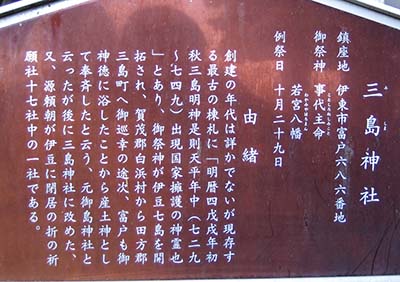 三島神社
み しま
鎮座地 伊東市富戸六八六番地
御祭神 事代主命
ことしろぬしのみこと
若宮八幡
例祭日 十月二十九日
由緒
創建の年代は詳かでないが現存す
る最古の棟札に「明暦四戊戌年初
秋三島明神是則天平年中(七二九
～七四九)出現国家擁護の神霊也
」とあり、御祭神が伊豆七島を開
拓され、賀茂郡白浜村から田方郡
三島町へ御巡幸の途次、富戸も御
神徳に浴したことから産土神とし
て奉斉したと云う、元御島神社と
云ったが後に三島神社に改めた、
又、源頼朝が伊豆に閉居の折の祈
願社十七社中の一社である。